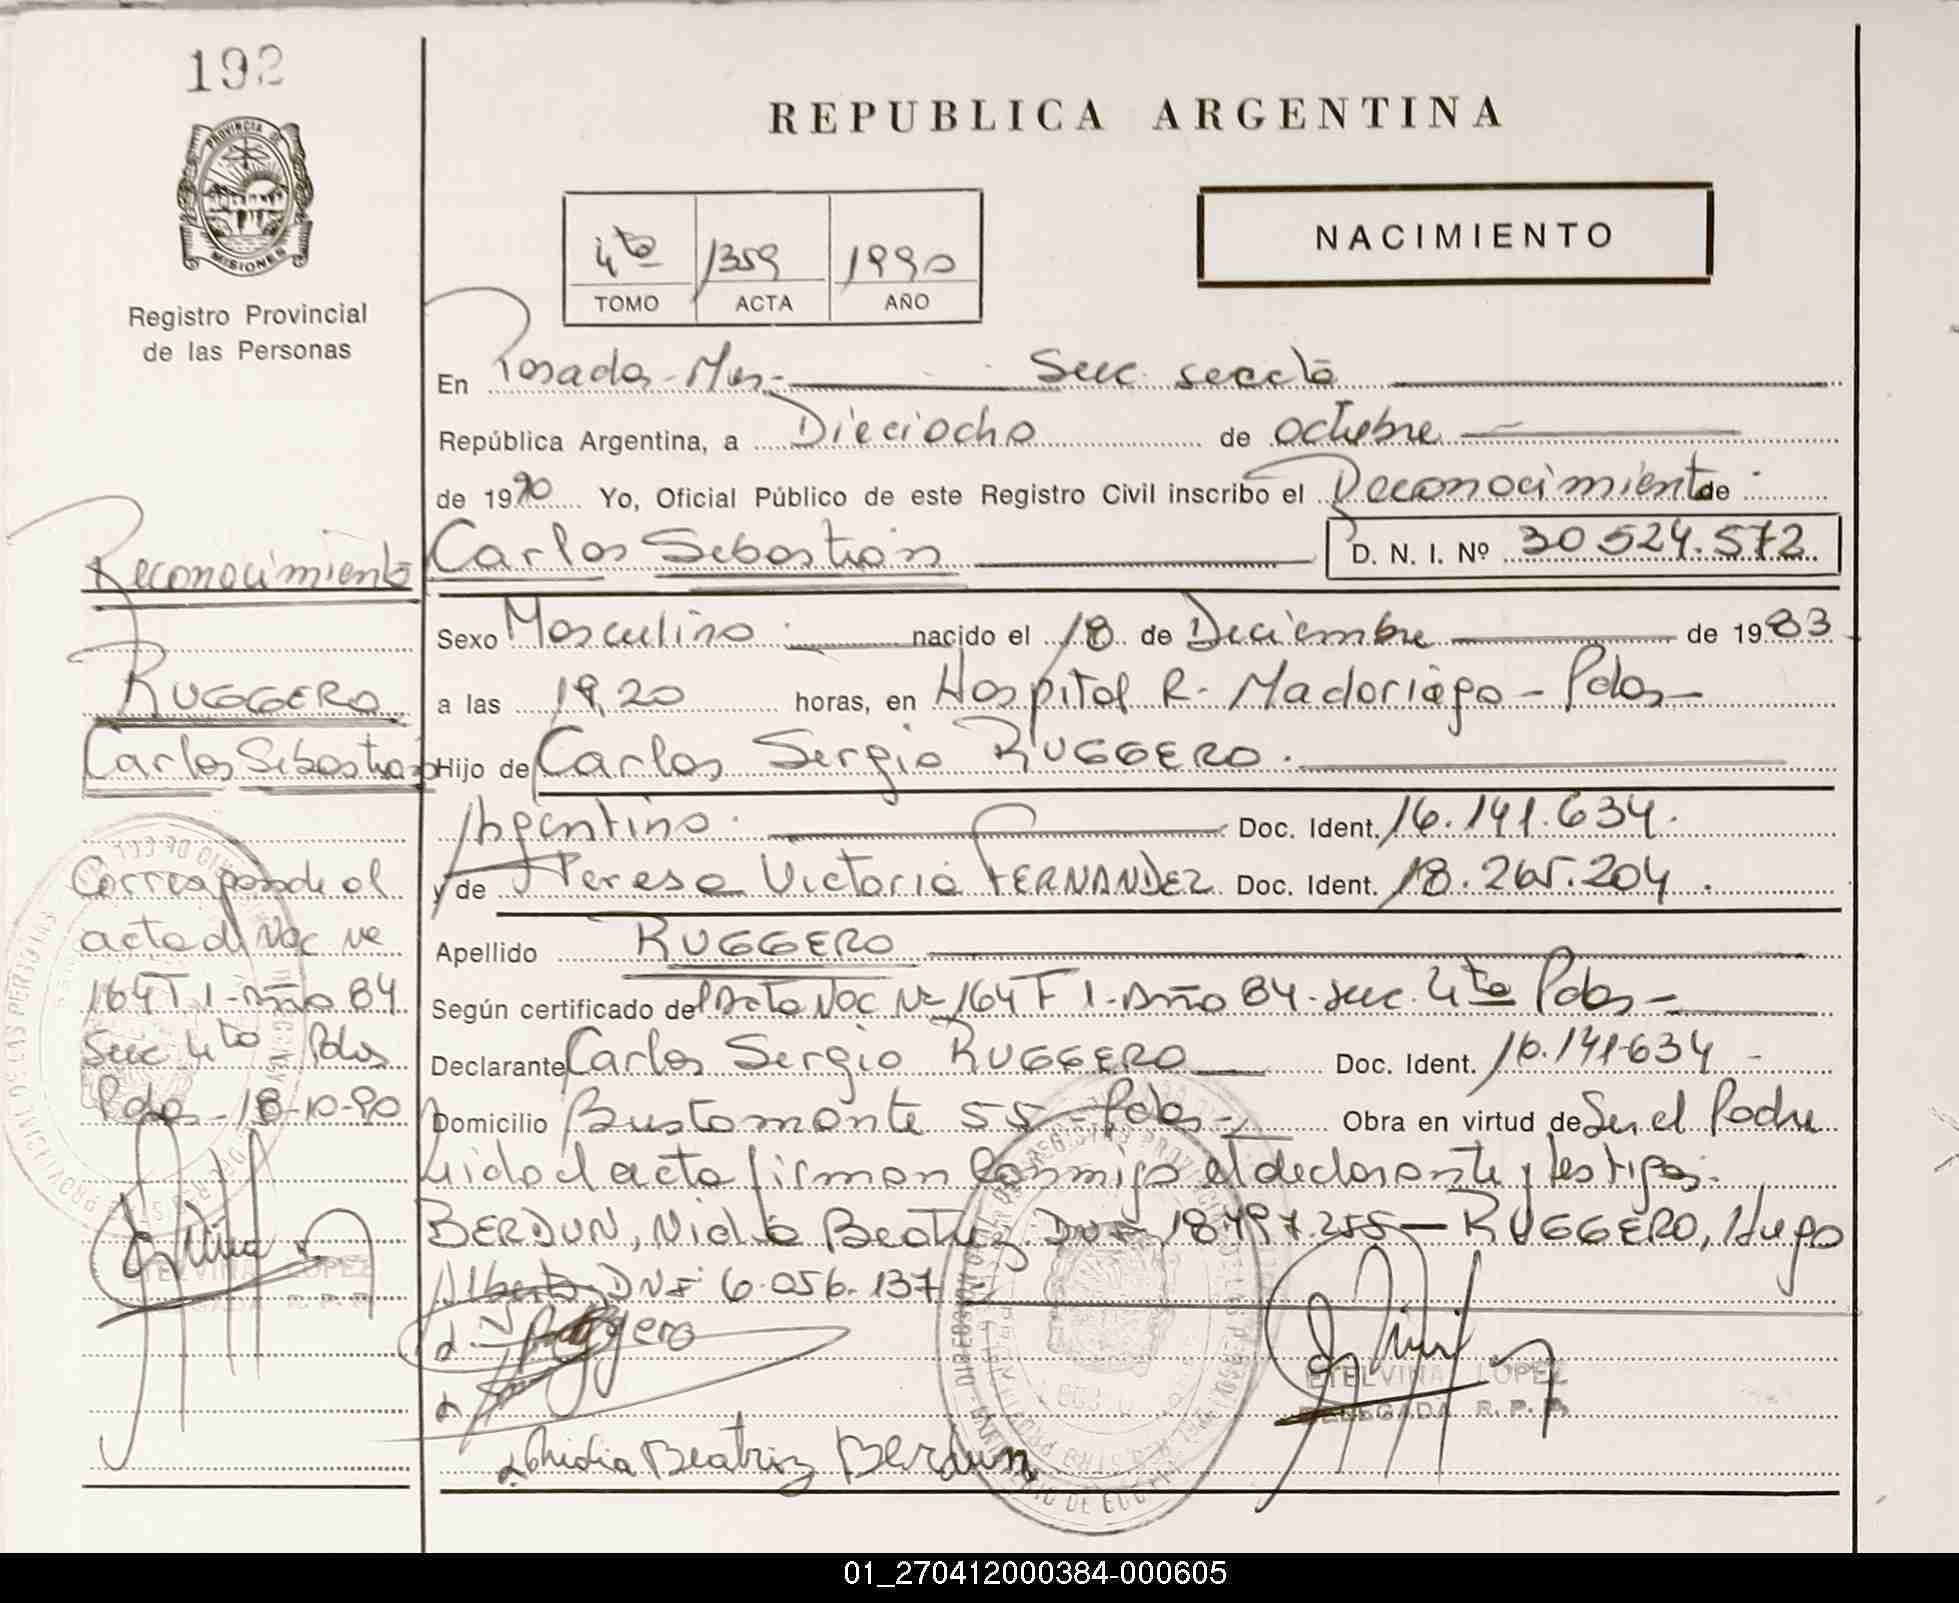 192
REPUBLICA ARGENTINA
PROVINCIA DE
MISIONES
4to 1359 1990
TOMO ACTA AÑO
NACIMIENTO
Registro Provincial
de las Personas
En Posadas-Mnes- Secc sexta
República Argentina, a Dieciocho de octubre
de 1990 Yo, Oficial Público de este Registro Civil inscribo el Reconocimiento de
Carlos Sebastián D. N. I. Nº 30.524.572
Sexo Masculino nacido el 18 de Diciembre de 1983
a las 19,20 horas, en Hospital R. Madariaga - Pdas-
Hijo de Carlos Sergio RUGGERO.
Argentino. Doc. Ident. 16.141.634.
y de Teresa Victoria FERNANDEZ Doc. Ident. 18.265.204.
Apellido RUGGERO
Según certificado del Acta Nac Nº 164 T 1-Año 84-secc. 4ta Pdas-
Declarante Carlos Sergio RUGGERO Doc. Ident. 16.141.634 -
Domicilio Bustamante 55-Pdas- Obra en virtud de Ser el Padre
Leida el acta firman conmigo el declarante y testigos:
BERDUN, Nidia Beatriz DNI 18.797.255- RUGGERO, Hugo
Alberto DNI 6.056.137
Nhidia Beatriz Berdun
ETELVINA LOPEZ
DELEGADA R. P. P.
Reconocimiento
RUGGERO
Carlos Sebastian
Corresponde al
acta de Nac Nº
164 T 1-Año 84
Secc 4ta Pdas
Pdas-18-10-90
ETELVINA LOPEZ
DELEGADA R. P. P.
01_270412000384-000605